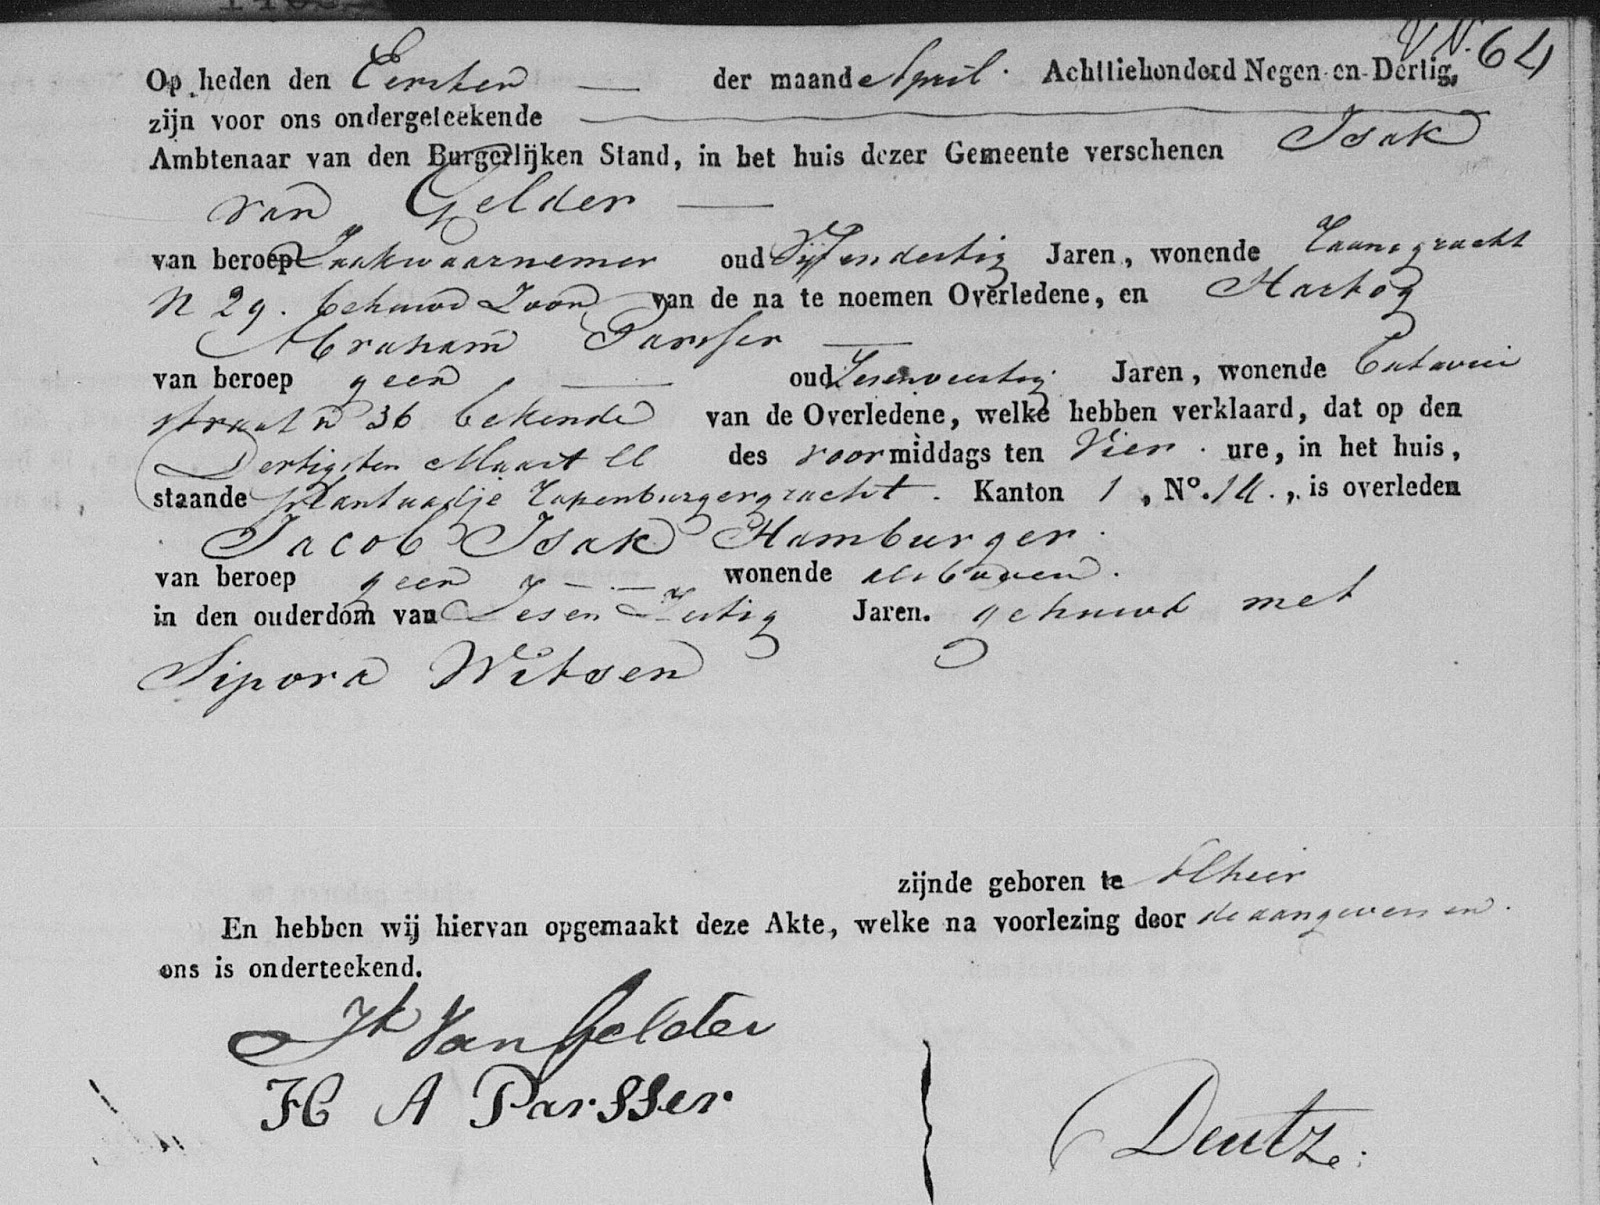 V N. 64
Op heden den Eersten der maand April. Achttiehonderd Negen-en-Dertig,
zijn voor ons ondergeteekende
Ambtenaar van den Burgerlijken Stand, in het huis dezer Gemeente verschenen Isak
van Gelder
van beroep Zaakwaarnemer oud Vyfendertig Jaren, wonende
N 29. behuwd Zoon van de na te noemen Overledene, en Hartog
Abraham Parsser
van beroep geen oud Zesenveertig Jaren, wonende Batavier
straat n 36 bekende van de Overledene, welke hebben verklaard, dat op den
Dertigsten Maart ll des voormiddags ten Vier ure, in het huis,
staande plantaadje Kanton 1, No. 14., is overleden
Jacob Isak Hamburger.
van beroep geen wonende als boven.
in den ouderdom van Zesen Zestig Jaren. gehuwd met
Sipora Witsen
zijnde geboren te Alhier
En hebben wij hiervan opgemaakt deze Akte, welke na voorlezing door de aangevers en
ons is onderteekend.
Ik Van Gelder
H A Parsser
Deutz.